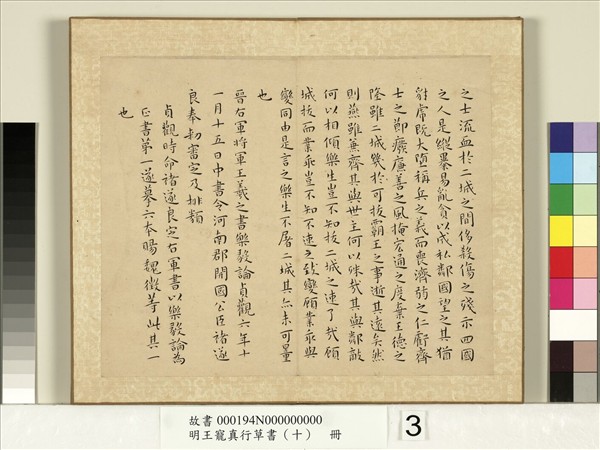 之士流血於二城之間侈殺傷之殘示四國
之人是縱暴易亂貪以成私鄰國望之其猶
豺虎既大墮稱兵之義而喪濟弱之仁虧齊
士之節廢廉善之風掩宏通之度棄王德之
隆雖二城幾於可拔霸王之事逝其遠矣然
則燕雖兼齊其與世主何以殊哉其與鄰敵
何以相傾樂生豈不知拔二城之速了哉顧
城拔而業乖豈不知不速之致變顧業乖與
變同由是言之樂生不屠二城其亦未可量
也
晉右軍將軍王羲之書樂毅論貞觀六年十
一月十五日中書令河南郡開國公臣褚遂
良奉勑審定及排類
貞觀時命褚遂良定右軍書以樂毅論為
正書第一遂摹六本賜魏徵等此其一
也
故書 000194N000000000
明王寵真行草書（十） 冊
3